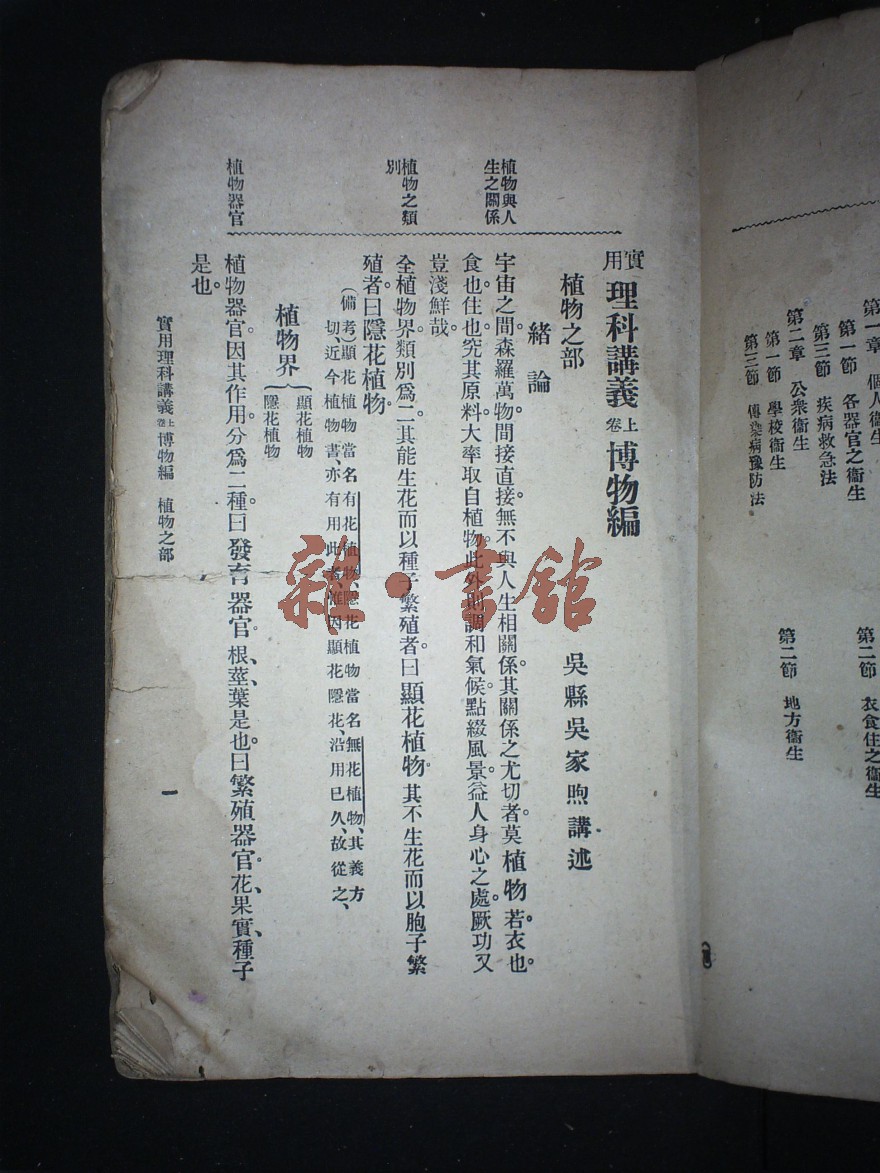 第一章 個人衞生
第一節 各器官之衞生
第二節 衣食住之衞生
第三節 疾病救急法
第二章 公衆衞生
第一節 學校衞生
第二節 地方衞生
第三節 傳染病豫防法
實用理科講義 卷上 博物編
吳縣吳家煦講述
植物之部
緒論
植物與人
生之關係
宇宙之間。森羅萬物。間接直接。無不與人生相關係。其關係之尤切者。莫植物若。衣也。
食也。住也。究其原料。大率取自植物。此外則調和氣候。點綴風景。益人身心之處。厥功又
豈淺鮮哉。
植物之類
別
全植物界。類別爲二。其能生花而以種子繁殖者。曰顯花植物。其不生花而以胞子繁
殖者。曰隱花植物。
(備考)顯花植物當名有花植物、隱花植物當名無花植物、其義方
切、近今植物書、亦有用此者、惟因顯花隱花、沿用已久、故從之、
植物界
顯花植物
隱花植物
植物器官
植物器官。因其作用。分爲二種。曰發育器官。根、莖、葉是也。曰繁殖器官。花、果實、種子
是也。
實用理科講義 卷上 博物編 植物之部
一
雜·書館